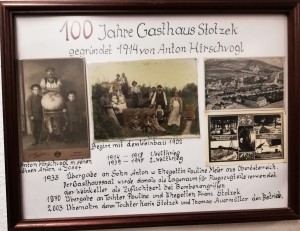 100 Jahre Gasthaus Stotzek
gegründet 1914 von Anton Hirschvogl
Anton Hirschvogl m. seinen
Söhnen Anton u. Josef
Beginn mit dem Weinbau 1902
1914 - 1918 1. Weltkrieg
1939 - 1945 2. Weltkrieg
1938 Übergabe an Sohn Anton u. Ehegattin Pauline Meier aus Oberösterreich.
Der Gasthaussaal wurde damals als Lagerraum für Flugzeugteile verwendet
der Weinkeller als Zufluchtsort bei Bombenangriffen
1970 Übergabe an Tochter Pauline und Ehegatten Franz Stotzek
2003 Übernahm deren Tochter Karin Stotzek und Thomas den Betrieb.